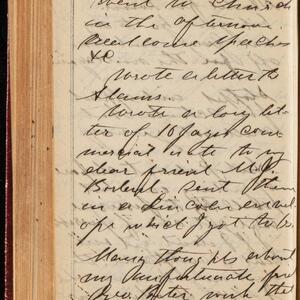 went to Church
in the afternoon
welcome speeches
&c.
Wrote a letter to
Adams.
Wrote a long let
ter of 10 pages com
mercial note to my
dear friend M.
sent them
in a Lincoln envel
ope which I got to be.
Many thoughts about
my unfortunate
with the